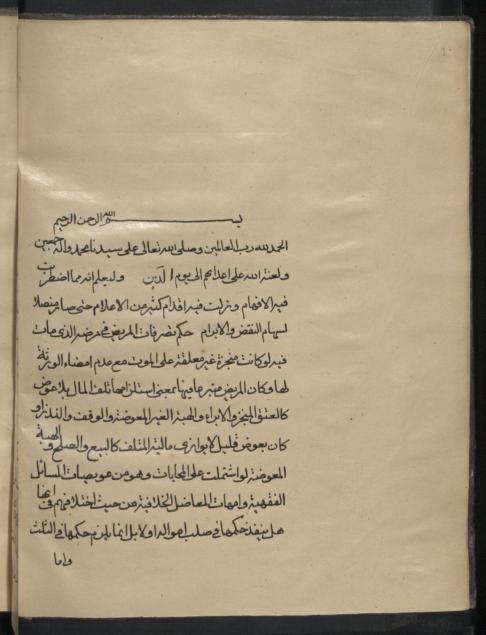 بسم الله الرحمن الرحيم
الحمد لله رب العالمين وصلى الله تعالى على سيدنا محمد واله اجمعين
ولعنة الله على اعدائهم الى يوم الدين وليعلم انه مما اضطربت
فيه الافهام وزلت فيه اقدام كثير من الاعلام حتى صار منضلا
لسهام النقض والابرام حكم تصرفات المريض في مرضه الذي مات
فيه لو كانت منجزة غير معلقة على الموت مع عدم امضاء الورثة
لها وكان المريض متبرعا فيها بمعنى استلزامها تلف المال بلا عوض
كالعتق المنجز والابراء والهبة الغير المعوضة والوقف والنذر او
كان بعوض قليل لا يوازي مالية المتلف كالبيع والصلح والهبة
المعوضة لو اشتملت على المحابات وهو من عويصات المسائل
الفقهية وامهات المعاضل الخلافية من حيث اختلافهم في انها
هل ينفذ حكمها في صلب امواله او لا بل انما يلزم حكمها في الثلث
واما